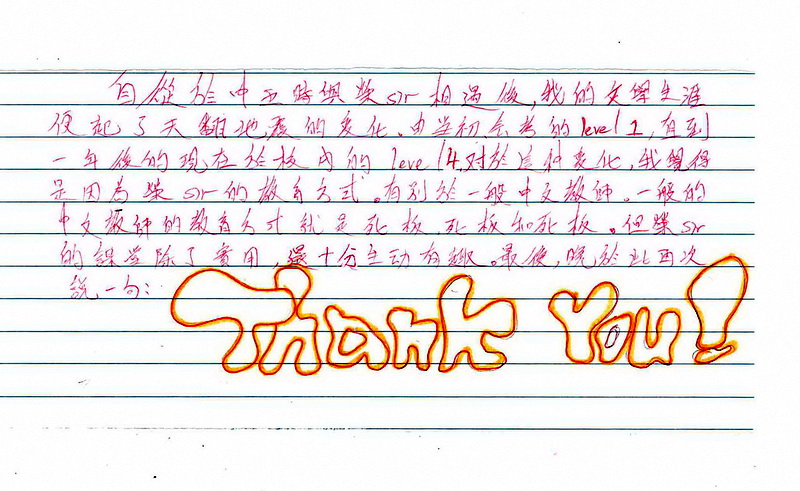 自從於中五時與柴sir相遇後，我的文學生涯
便起了天翻地覆的变化。由當初会考的level 1，直到
一年後的現在於校內的level 4，对於这种变化，我覺得
是因為柴sir的教育方式。有別於一般中文教師。一般的
中文教師的教育方式就是死板、死板和死板。但柴sir
的課堂除了實用，還十分生动有趣。最後，晚於此再次
說一句：
Thank You!